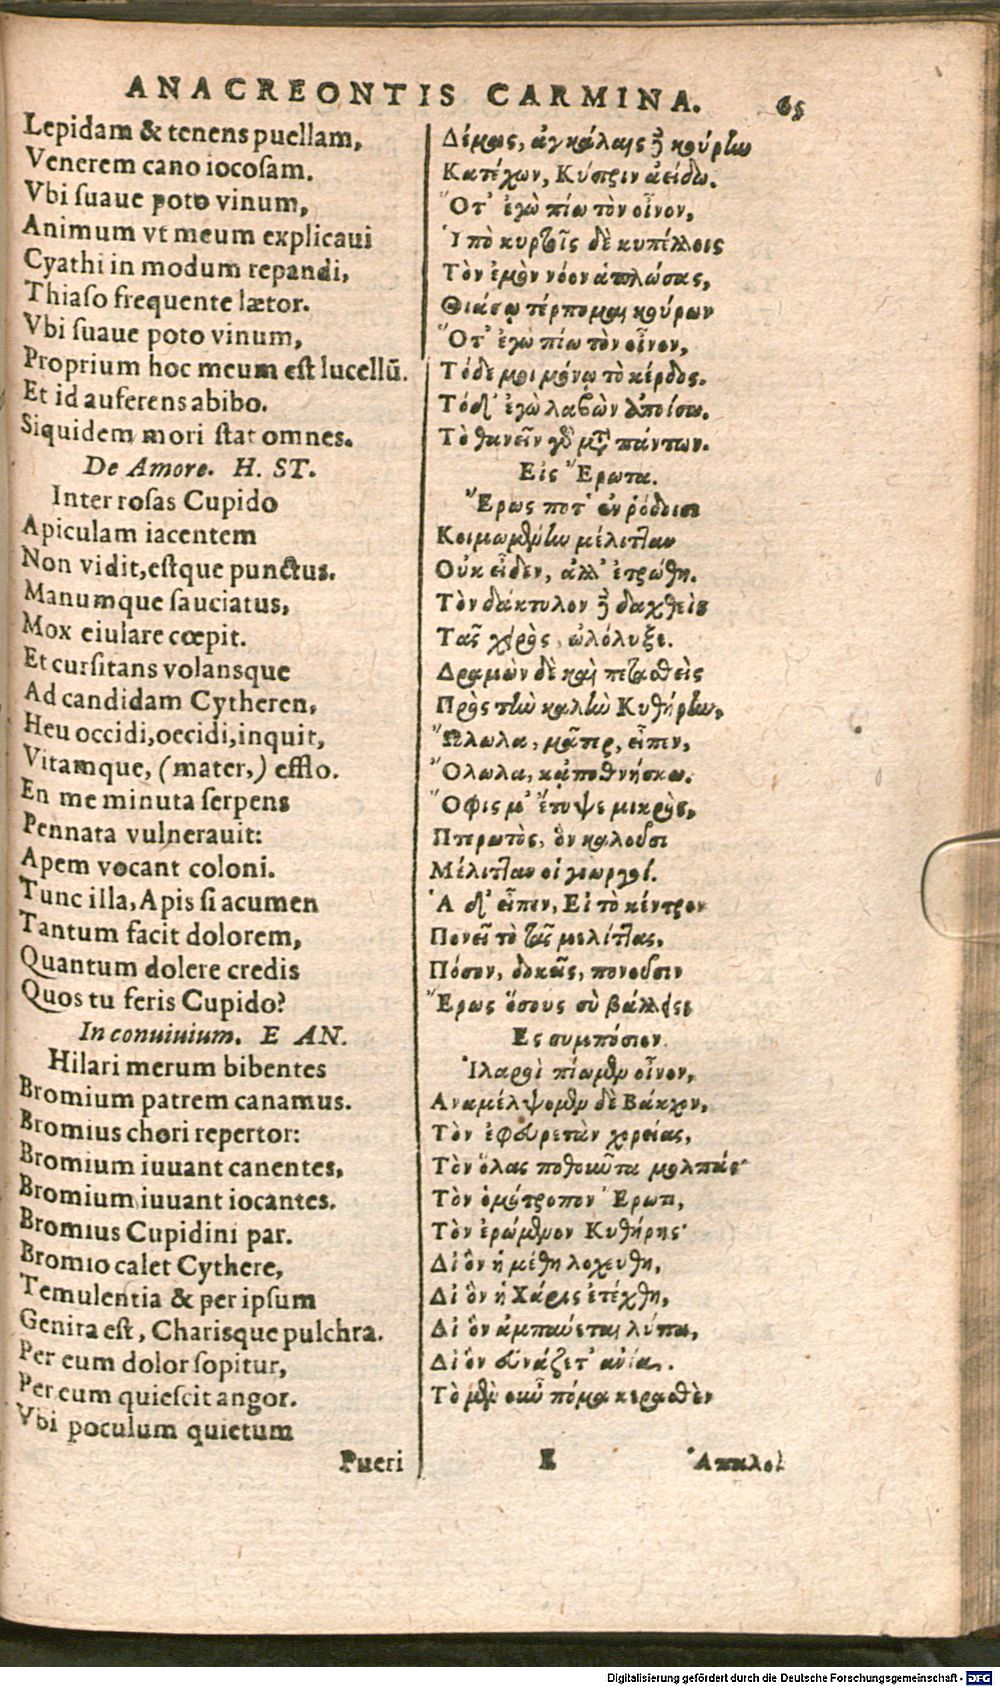 ANACREONTIS CARMINA. 65
Lepidam & tenens puellam,
Venerem cano iocosam.
Vbi suaue poto vinum,
Animum vt meum explicaui
Cyathi in modum repandi,
Thiaso frequente lætor.
Vbi suaue poto vinum,
Proprium hoc meum est lucellū.
Et id auferens abibo.
Siquidem mori stat omnes.
De Amore. H. ST.
Inter rosas Cupido
Apiculam iacentem
Non vidit, estque punctus.
Manumque sauciatus,
Mox eiulare cœpit.
Et cursitans volansque
Ad candidam Cytheren,
Heu occidi, occidi, inquit,
Vitamque, (mater,) efflo.
En me minuta serpens
Pennata vulnerauit:
Apem vocant coloni.
Tunc illa, Apis si acumen
Tantum facit dolorem,
Quantum dolere credis
Quos tu feris Cupido?
In conuiuium. E AN.
Hilari merum bibentes
Bromium patrem canamus.
Bromius chori repertor:
Bromium iuuant canentes,
Bromium iuuant iocantes.
Bromius Cupidini par.
Bromio calet Cythere,
Temulentia & per ipsum
Genita est, Charisque pulchra.
Per eum dolor sopitur,
Per eum quiescit angor.
Vbi poculum quietum
Pueri
Δέμας, ἀγκάλαις δὲ κούρην
Κατέχων, Κύπριν ἀείδω.
Ὅτ' ἐγὼ πίω τὸν οἶνον,
Ὑπὸ κυρτοῖς δὲ κυπέλλοις
Τὸν ἐμὸν νόον ἁπλώσας,
Θιάσῳ τέρπομαι κούρων
Ὅτ' ἐγὼ πίω τὸν οἶνον,
Τόδε μοι μόνῳ τὸ κέρδος.
Τόδ' ἐγὼ λαβὼν ἀποίσω.
Τὸ θανεῖν γὰρ μετὰ πάντων.
Εἰς Ἔρωτα.
Ἔρως ποτ' ἐν ῥόδοισι
Κοιμωμένην μέλιτταν
Οὐκ εἶδεν, ἀλλ' ἐτρώθη.
Τὸν δάκτυλον δὲ δαχθεὶς
Τᾶς χειρὸς, ὠλόλυξε.
Δραμὼν δὲ καὶ πετασθεὶς
Πρὸς τὴν καλὴν Κυθήρην,
Ὤλωλα, μᾶτερ, εἶπεν,
Ὄλωλα, κἀποθνήσκω.
Ὄφις μ' ἔτυψε μικρὸς,
Πτερωτὸς, ὃν καλοῦσι
Μέλιτταν οἱ γεωργοί.
Ἁ δ' εἶπεν, Εἰ τὸ κέντρον
Πονεῖ τὸ τᾶς μελίττας,
Πόσον, δοκᾶς, πονοῦσιν
Ἔρως ὅσους σὺ βάλλεις;
Ες συμπόσιον.
Ἱλαροὶ πίωμεν οἶνον,
Αναμέλψομεν δὲ Βάκχον,
Τὸν ἐφευρετὰν χορείας,
Τὸν ὅλας ποθοῦντα μολπάς·
Τὸν ὁμότροπον Ἔρωτι,
Τὸν ἐρώμενον Κυθήρης·
Δι' ὃν ἡ μέθη λοχεύθη,
Δι' ὃν ἡ Χάρις ἐτέχθη,
Δι' ὃν ἀμπαύεται λύπα,
Δι' ὃν εὐνάζετ' ἀνία.
Τὸ μὲν οὖν πόμα κερασθὲν
E Ἁπαλοὶ
Digitalisierung gefördert durch die Deutsche Forschungsgemeinschaft - DFG